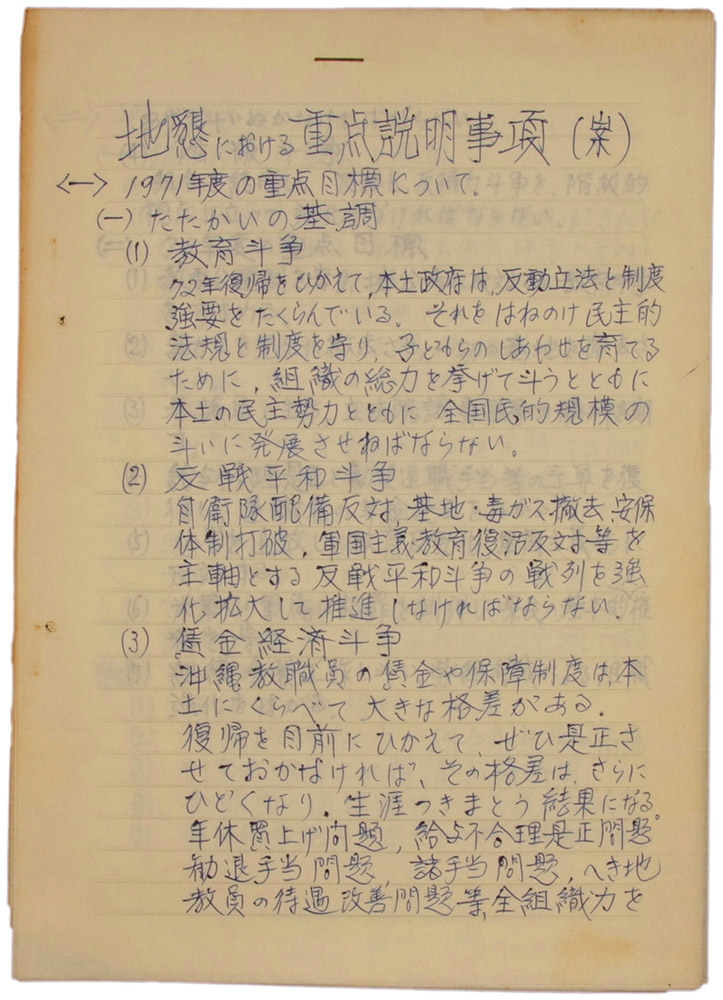 地懇における重点説明事項(案)
<一> 1971年度の重点目標について.
(一) たたかいの基調
(1) 教育斗争
72年復帰をひかえて,本土政府は,反動立法と制度
強要をたくらんでいる. それをはねのけ民主的
法規と制度を守り, 子どもらのしあわせを育てる
ために, 組織の総力を挙げて斗うとともに
本土の民主勢力とともに 全国民的規模の
斗いに発展させねばならない。
(2) 反戦平和斗争
自衛隊配備反対, 基地・毒ガス撤去,安保
体制打破, 軍国主義教育復活反対等を
主軸とする反戦平和斗争の戦列を強
化拡大して推進しなければならない.
(3) 賃金経済斗争
沖縄教職員の賃金や保障制度は,本
土にくらべて大きな格差がある.
復帰を目前にひかえて、ぜひ是正さ
せておかなければ、その格差は,さらに
ひどくなり. 生涯つきまとう結果になる。
年休買上げ問題, 給与不合理是正問題
勧退手当問題, 諸手当問題, へき地
教員の待遇改善問題等,全組織力を